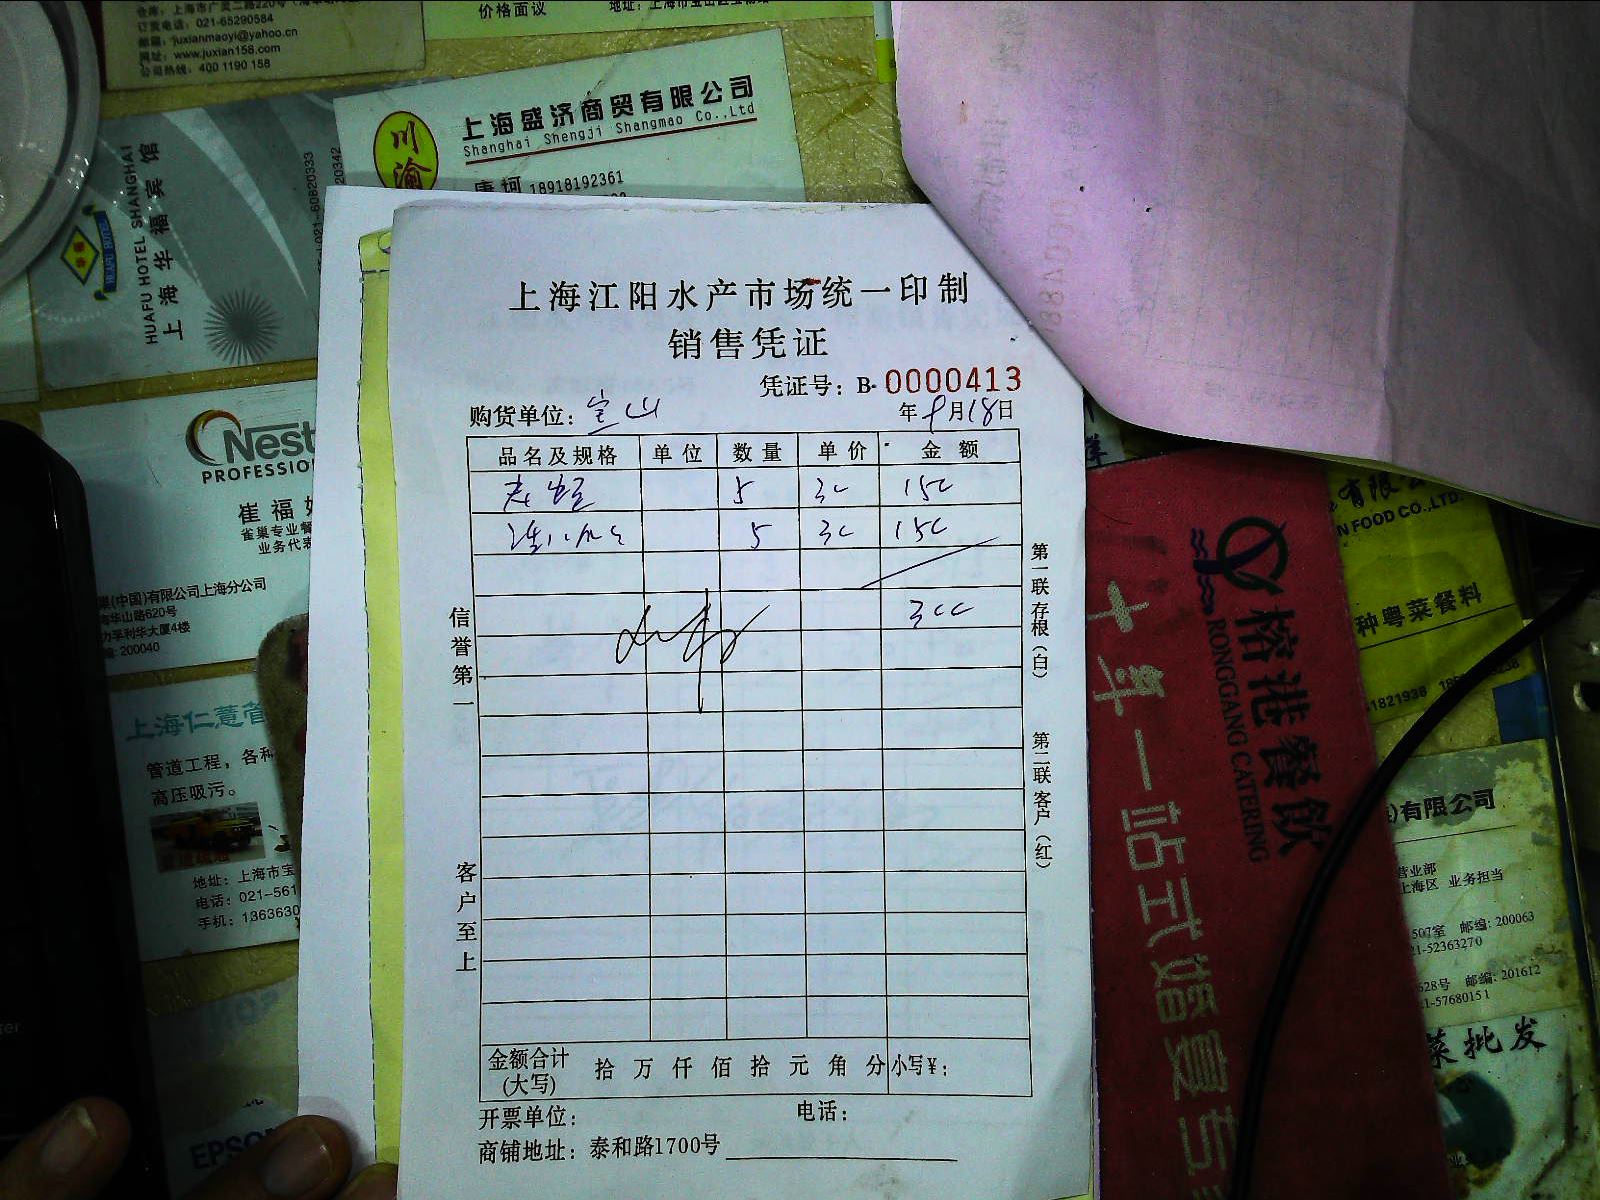 订货电话：021-65290584
邮箱：juxianmaoyi@yahoo.cn
网址：www.juxian158.com
公司热线：400 1190 158
价格面议
上海盛济商贸有限公司
Shanghai Shengji Shangmao Co.,Ltd
川渝
唐珂 18918192361
上海华福宾馆
HUAFU HOTEL SHANGHAI
HUAFU HOTEL
021-60820333
上海江阳水产市场统一印制
销售凭证
凭证号：B- 0000413
购货单位：宝山
年 9月18日
品名及规格 单位 数量 单价 金额
5 30 150
5 30 150
300
信誉第一
客户至上
第一联存根（白）
第二联客户（红）
金额合计(大写) 拾 万 仟 佰 拾 元 角 分 小写¥：
开票单位： 电话：
商铺地址：泰和路1700号
PROFESSIO
崔福
雀巢专业餐
业务代表
(中国)有限公司上海分公司
华山路620号
利华大厦4楼
200040
管道工程，各种
高压吸污。
地址：上海市宝
电话：021-561
手机：1363630
EPSO
榕港餐飲
RONGGANG CATERING
十年一站式婚宴专
有限公
N FOOD CO.,LTD.
种粤菜餐料
有限公司
营业部
上海区 业务担当
507室 邮编：200063
21-52363270
628号 邮编：201612
21-57680151
菜批发